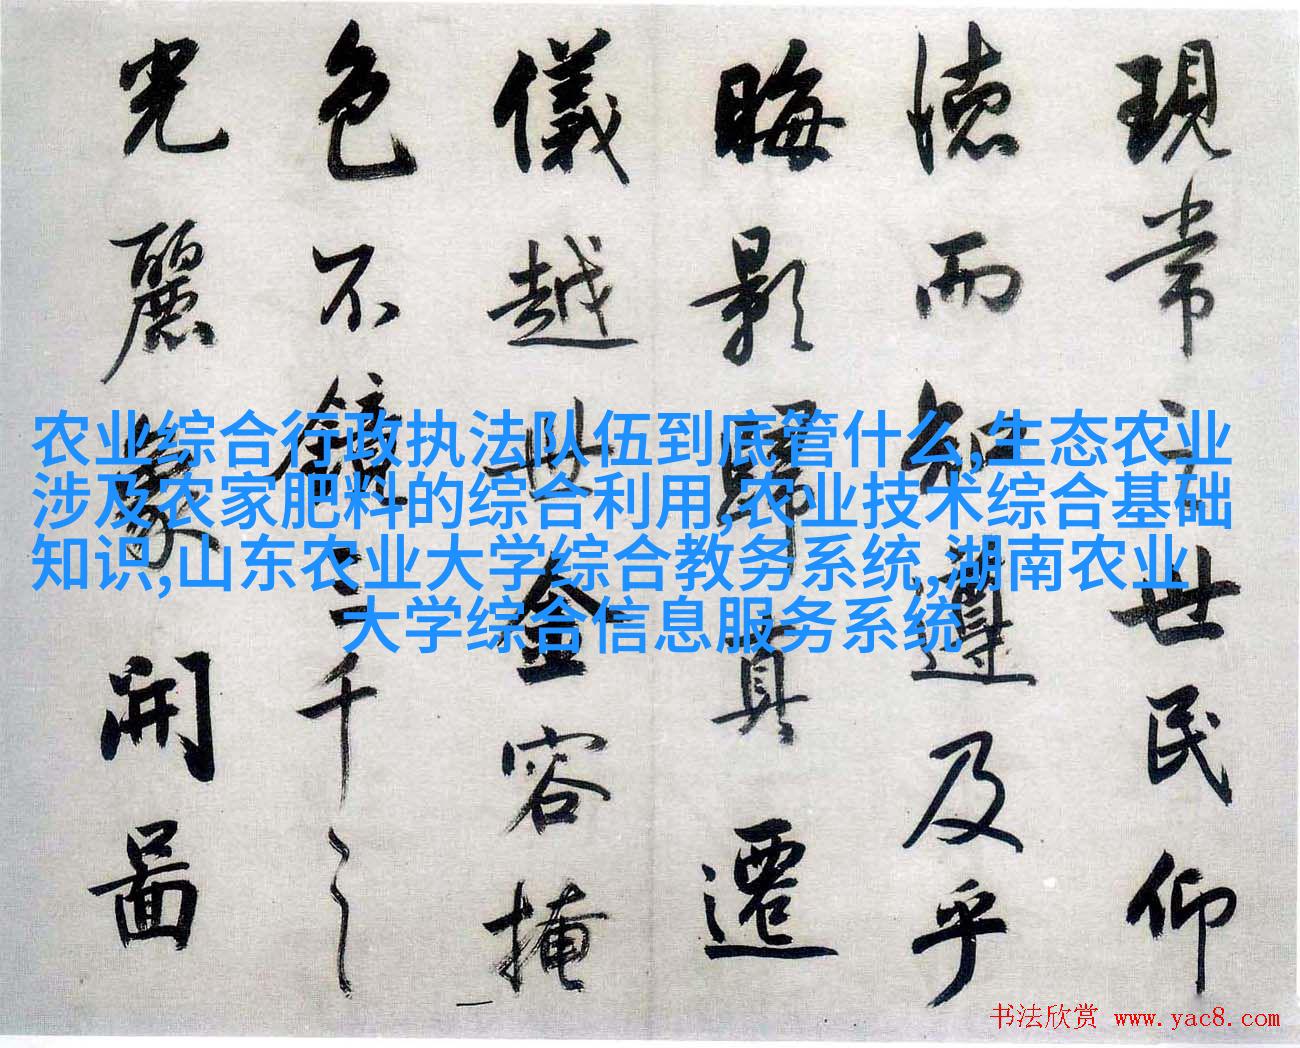 現常之世民仰
徳而知遵及乎
晦影歸真遷
儀越世金容掩
色不鏡三千之
光麗象開圖
农业综合行政执法队伍到底管什么,生态农业
涉及农家肥料的综合利用,农业技术综合基础
知识,山东农业大学综合教务系统,湖南农业
大学综合信息服务系统
书法欣赏 www.yac8.com